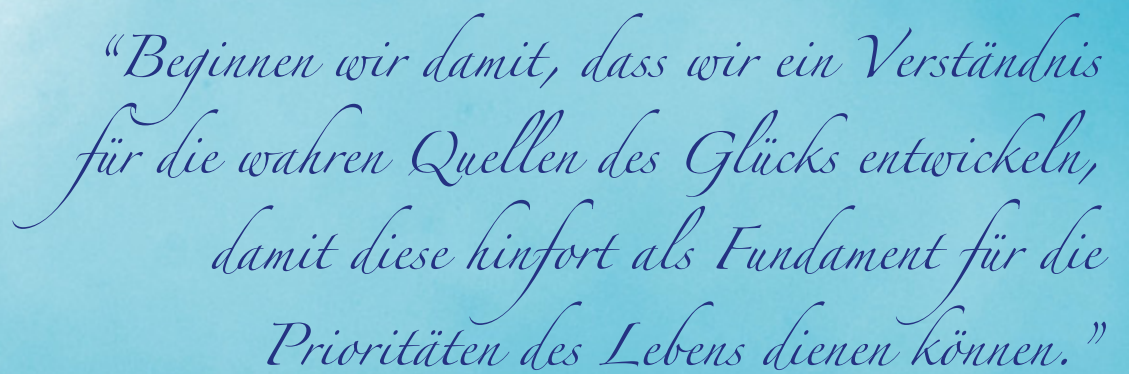 “Beginnen wir damit, dass wir ein Verständnis
für die wahren Quellen des Glücks entwickeln,
damit diese hinfort als Fundament für die
Prioritäten des Lebens dienen können.”